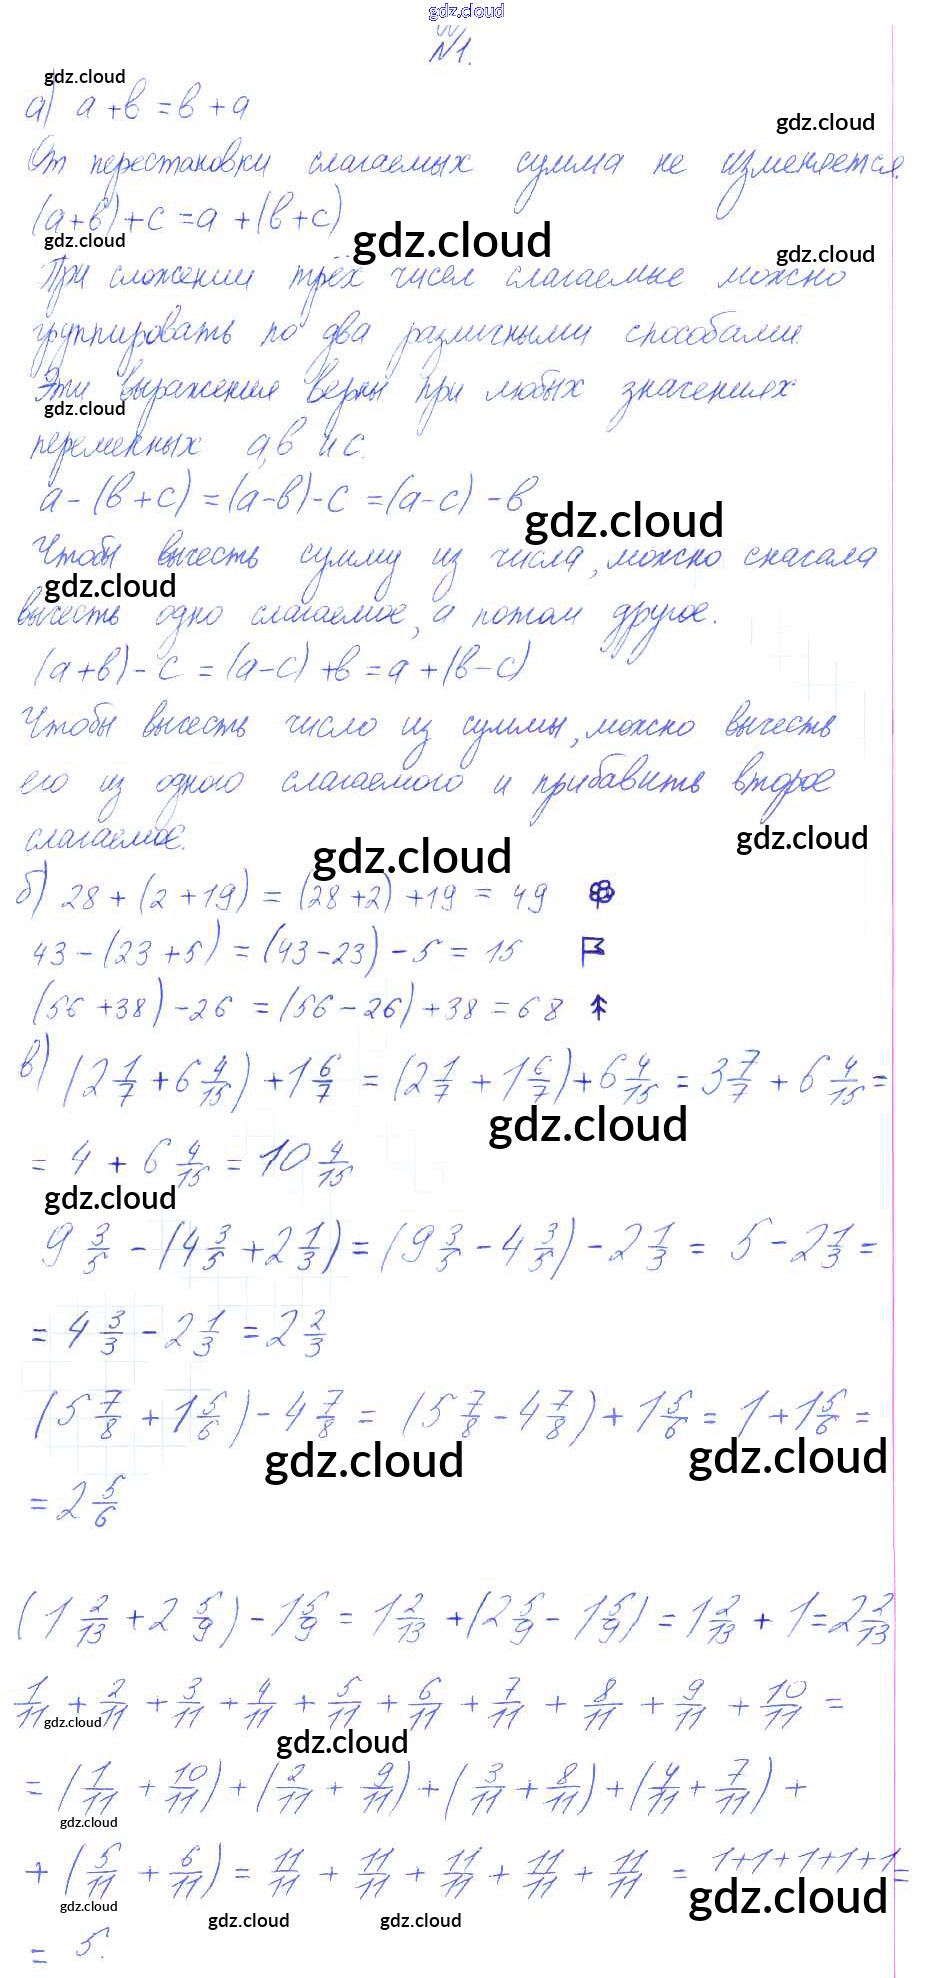 gdz.cloud
№1.
gdz.cloud
а) а+в=в+а
gdz.cloud
От перестановки слагаемых сумма не изменяется.
(а+в)+с=а+(в+с)
gdz.cloud gdz.cloud gdz.cloud
При сложении трёх чисел слагаемые можно
группировать по два различными способами.
Эти выражения верны при любых значениях
gdz.cloud
переменных а,в и с.
а-(в+с)=(а-в)-с=(а-с)-в
gdz.cloud
Чтобы вычесть сумму из числа, можно сначала
gdz.cloud
вычесть одно слагаемое, а потом другое.
(а+в)-с=(а-с)+в=а+(в-с)
Чтобы вычесть число из суммы, можно вычесть
его из одного слагаемого и прибавить второе
слагаемое.
gdz.cloud gdz.cloud
б) 28+(2+19)=(28+2)+19=49
43-(23+5)=(43-23)-5=15
(56+38)-26=(56-26)+38=68
в) (2 1/7+6 4/15)+1 6/7=(2 1/7+1 6/7)+6 4/15=3 7/7+6 4/15=
gdz.cloud
=4+6 4/15=10 4/15
gdz.cloud
9 3/5-(4 3/5+2 1/3)=(9 3/5-4 3/5)-2 1/3=5-2 1/3=
=4 3/3-2 1/3=2 2/3
(5 7/8+1 5/6)-4 7/8=(5 7/8-4 7/8)+1 5/6=1+1 5/6=
gdz.cloud gdz.cloud
=2 5/6
(1 2/13+2 5/9)-1 5/9=1 2/13+(2 5/9-1 5/9)=1 2/13+1=2 2/13
1/11+2/11+3/11+4/11+5/11+6/11+7/11+8/11+9/11+10/11=
gdz.cloud gdz.cloud
=(1/11+10/11)+(2/11+9/11)+(3/11+8/11)+(4/11+7/11)+
gdz.cloud
+(5/11+6/11)=11/11+11/11+11/11+11/11+11/11=1+1+1+1+1=
gdz.cloud gdz.cloud gdz.cloud gdz.cloud
=5.